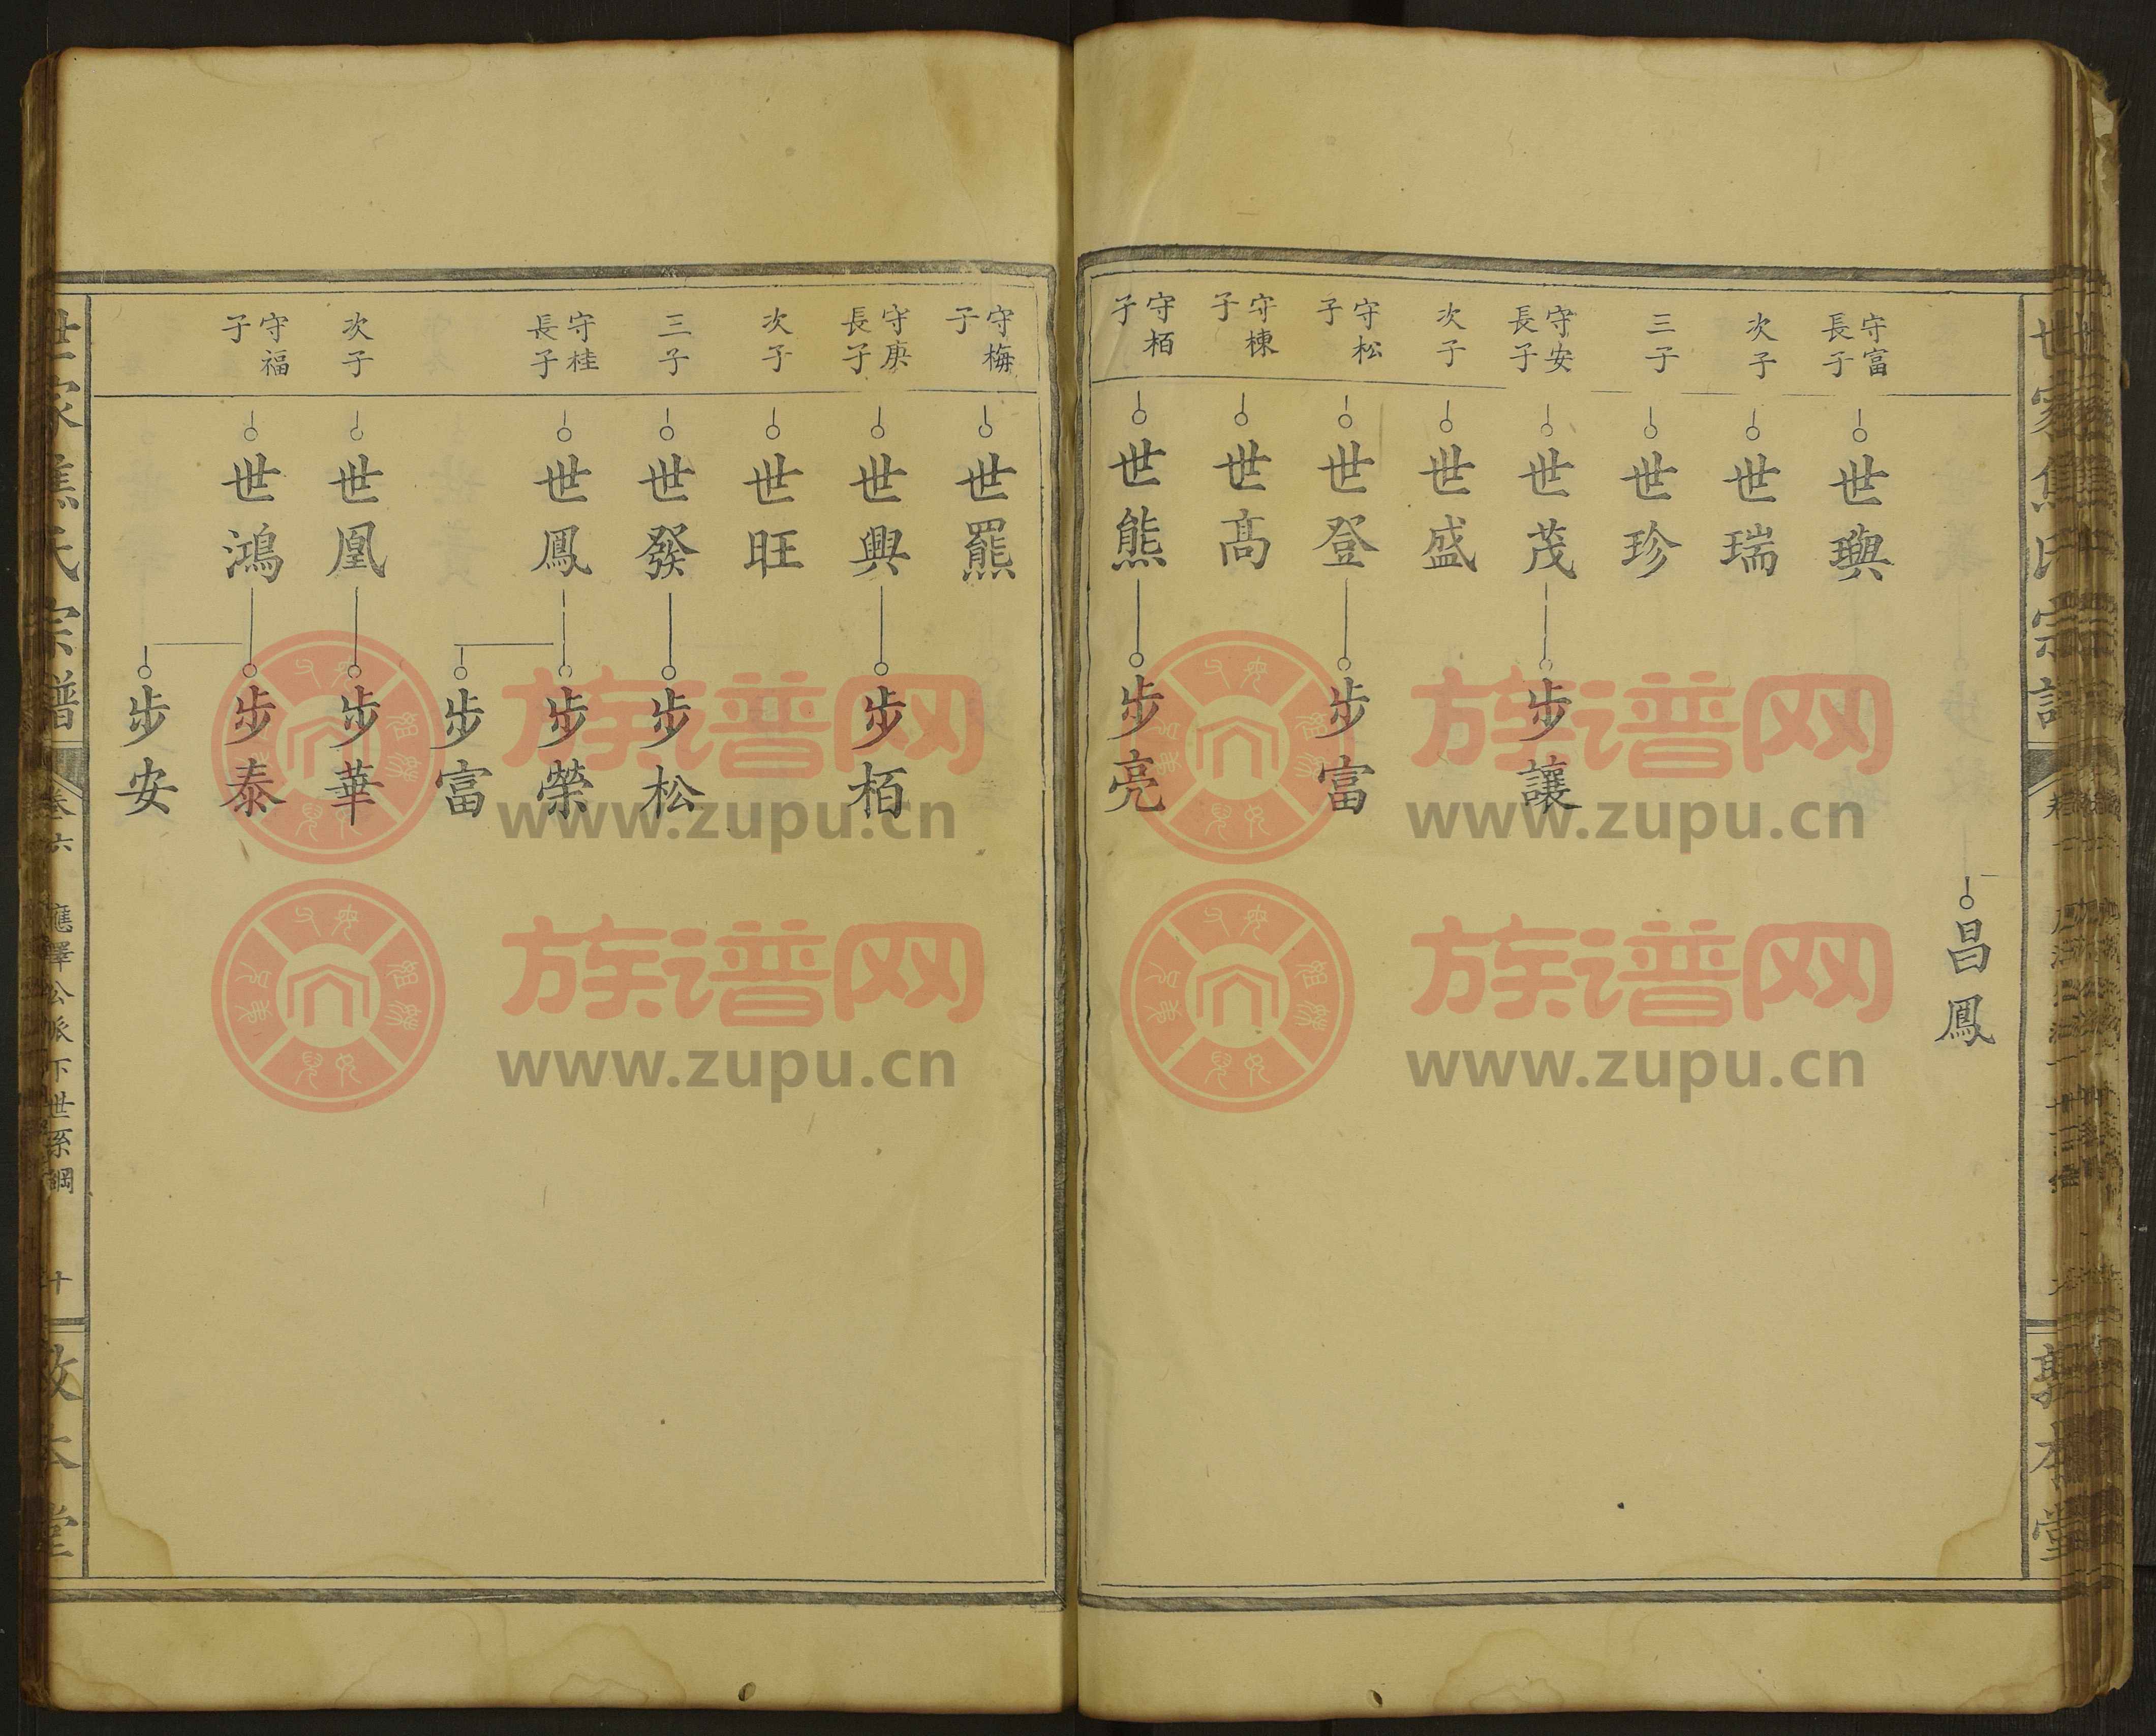 昌鳳
守富長子
世璵
次子
世瑞
三子
世珍
守安長子
世茂
步讓
次子
世盛
守松子
世登
步富
守棟子
世高
守栢子
世熊
步亮
守梅子
世羆
守庚長子
世興
步栢
次子
世旺
三子
世發
步松
守桂長子
世鳳
步榮
步富
次子
世凰
步華
守福子
世鴻
步泰
步安
世家焦氏宗譜
卷六
應擇公派下世系綱
十
敦本堂
族谱网
www.zupu.cn
族谱网
www.zupu.cn
族谱网
www.zupu.cn
族谱网
www.zupu.cn